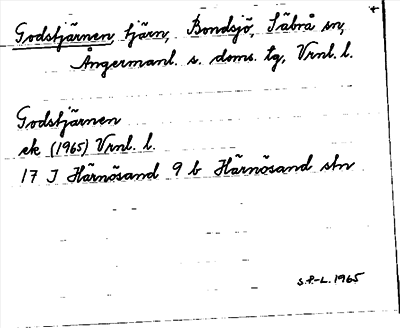 Godstjärnen, tjärn, Bondsjö, Säbrå sn,
Ångermanl. s. doms. tg, Vrnl. l.
Godstjärnen
ek (1965) Vrnl. l.
17 J Härnösand 9 b Härnösand stn
S.P.-L. 1965